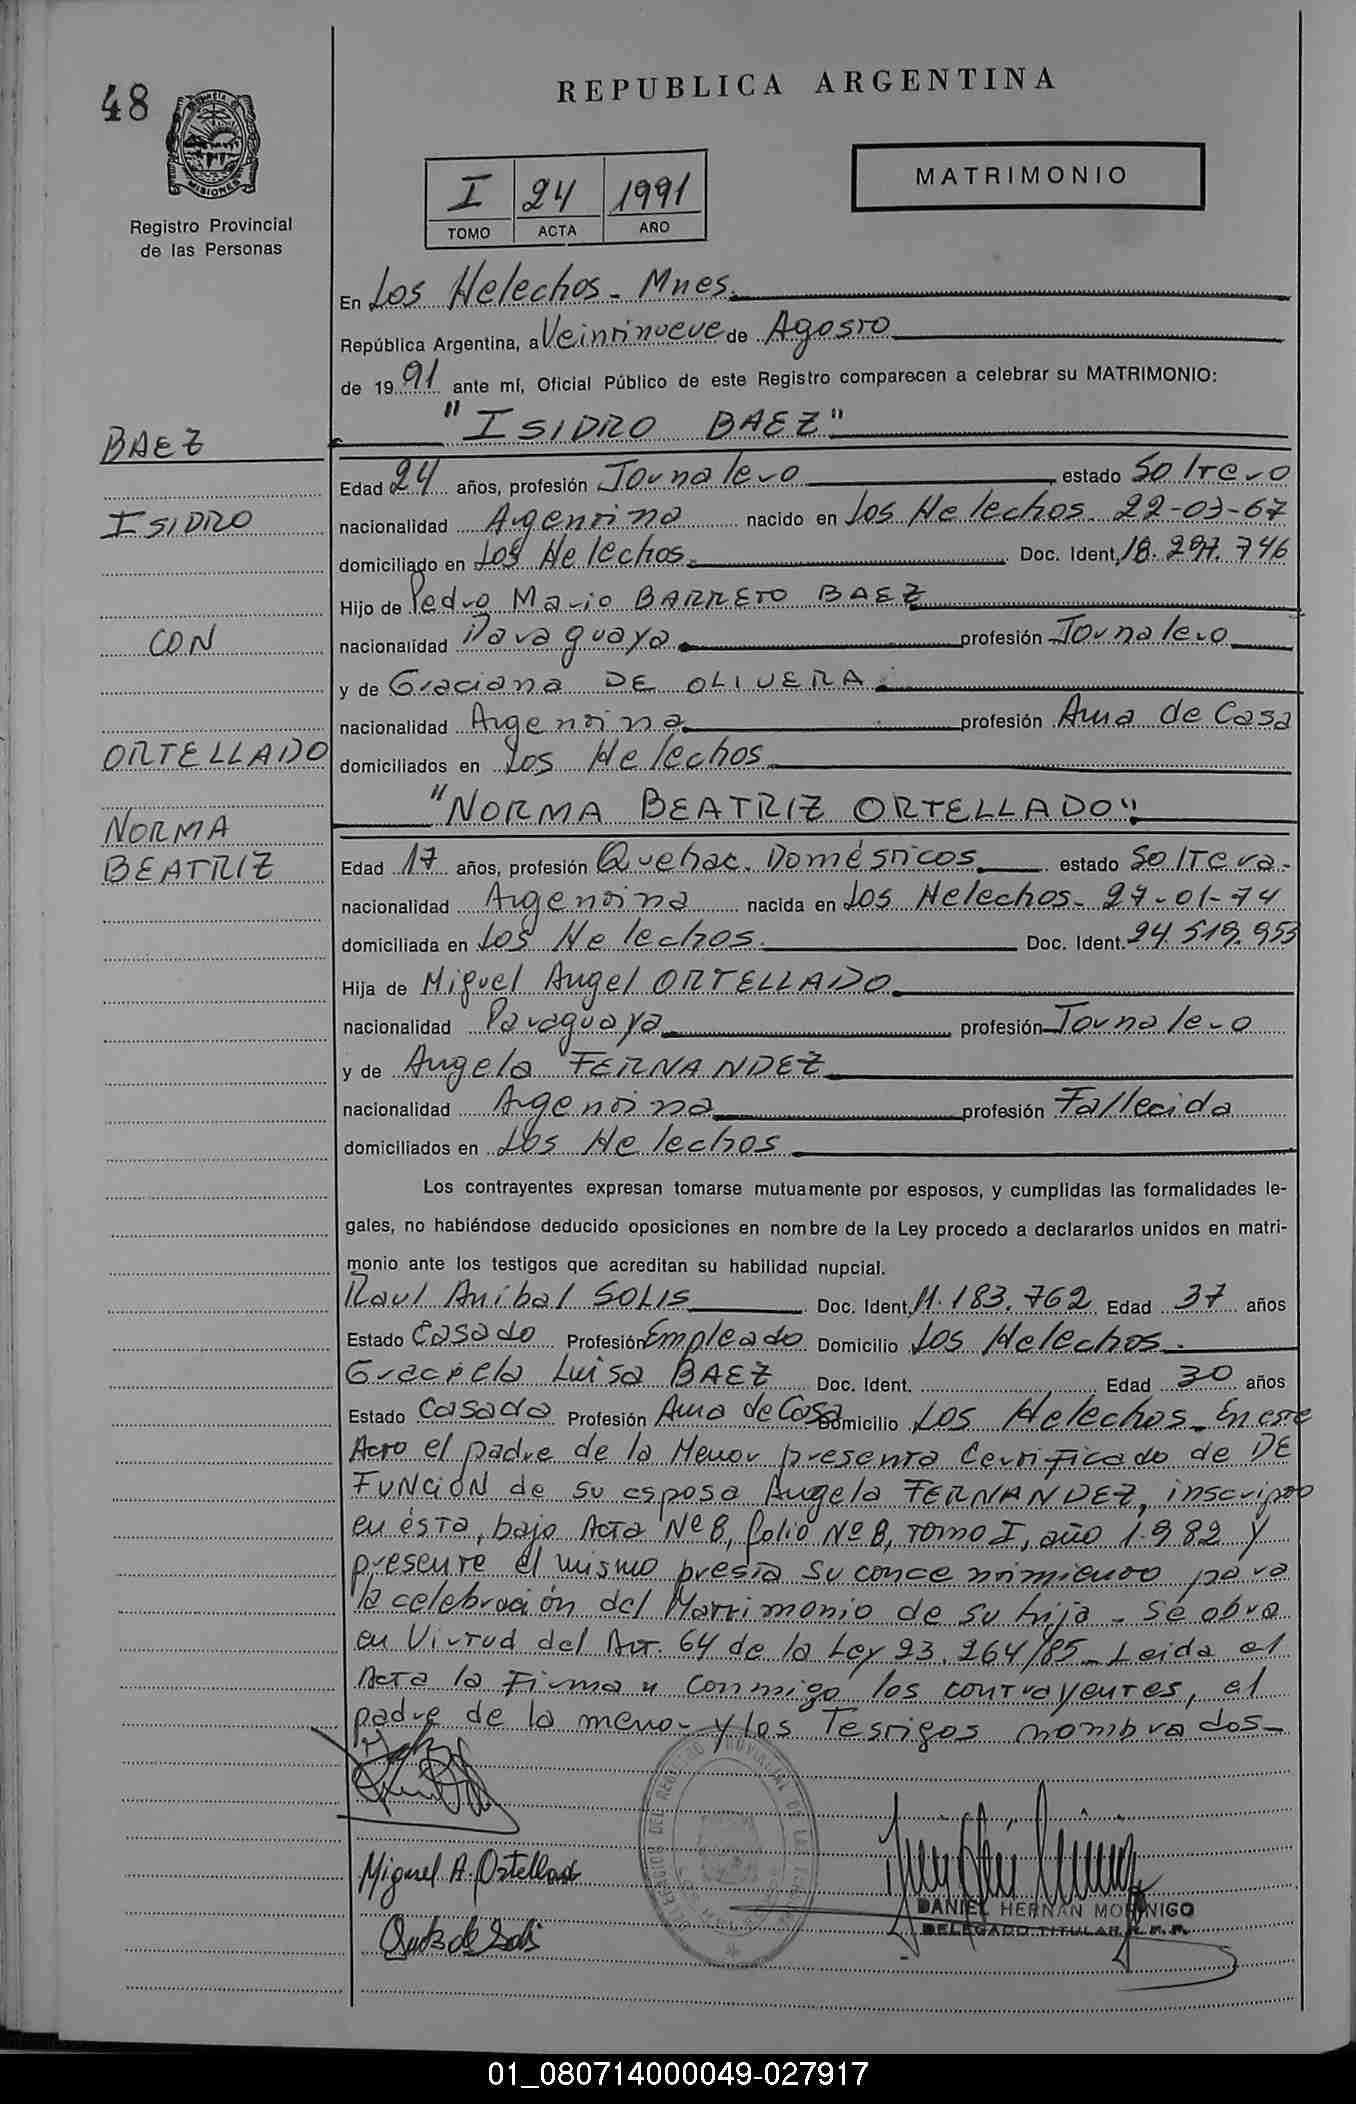 48
REPUBLICA ARGENTINA
MISIONES
Registro Provincial
de las Personas
MATRIMONIO
I 24 1991
TOMO ACTA AÑO
En Los Helechos - Mnes.
República Argentina, a Veintinueve de Agosto
de 1991 ante mí, Oficial Público de este Registro comparecen a celebrar su MATRIMONIO:
"ISIDRO BAEZ"
BAEZ
ISIDRO
CON
ORTELLADO
NORMA
BEATRIZ
Edad 24 años, profesión Jornalero estado Soltero
nacionalidad Argentina nacido en Los Helechos. 22-03-67
domiciliado en Los Helechos. Doc. Ident. 18.297.746
Hijo de Pedro Mario BARRETO BAEZ
nacionalidad Paraguaya profesión Jornalero
y de Graciana DE OLIVERA
nacionalidad Argentina profesión Ama de Casa
domiciliados en Los Helechos
"NORMA BEATRIZ ORTELLADO"
Edad 17 años, profesión Quehac. Domésticos estado Soltera.
nacionalidad Argentina nacida en Los Helechos - 27-01-74
domiciliada en Los Helechos. Doc. Ident. 24.519.953
Hija de Miguel Angel ORTELLADO
nacionalidad Paraguaya profesión Jornalero
y de Angela FERNANDEZ
nacionalidad Argentina profesión Fallecida
domiciliados en Los Helechos
Los contrayentes expresan tomarse mutuamente por esposos, y cumplidas las formalidades le-
gales, no habiéndose deducido oposiciones en nombre de la Ley procedo a declararlos unidos en matri-
monio ante los testigos que acreditan su habilidad nupcial.
Raul Anibal SOLIS Doc. Ident. 11.183.762 Edad 37 años
Estado Casado Profesión Empleado Domicilio Los Helechos.
Graciela Luisa BAEZ Doc. Ident. Edad 30 años
Estado Casada Profesión Ama de Casa Domicilio Los Helechos - En este
Acto el padre de la Menor presenta Certificado de DE
FUNCION de su esposa Angela FERNANDEZ, inscripto
en ésta, bajo Acta Nº 8, folio Nº 8, tomo I, año 1.982 y
presente el mismo presta su concentimiento para
la celebración del Matrimonio de su hija - Se obra
en Virtud del Art. 64 de la Ley 23.264/85 - Leida el
Acta la Firman conmigo los contrayentes, el
padre de la menor y los Testigos nombrados -
Miguel A. Ortellado
DANIEL HERNAN MORINIGO
DELEGADO TITULAR R.P.P.
01_080714000049-027917